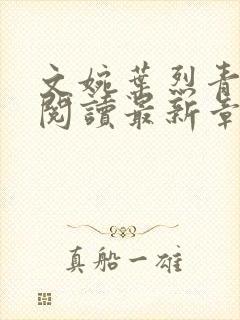 文婉葉烈青
閱讀最新章
真船一雄